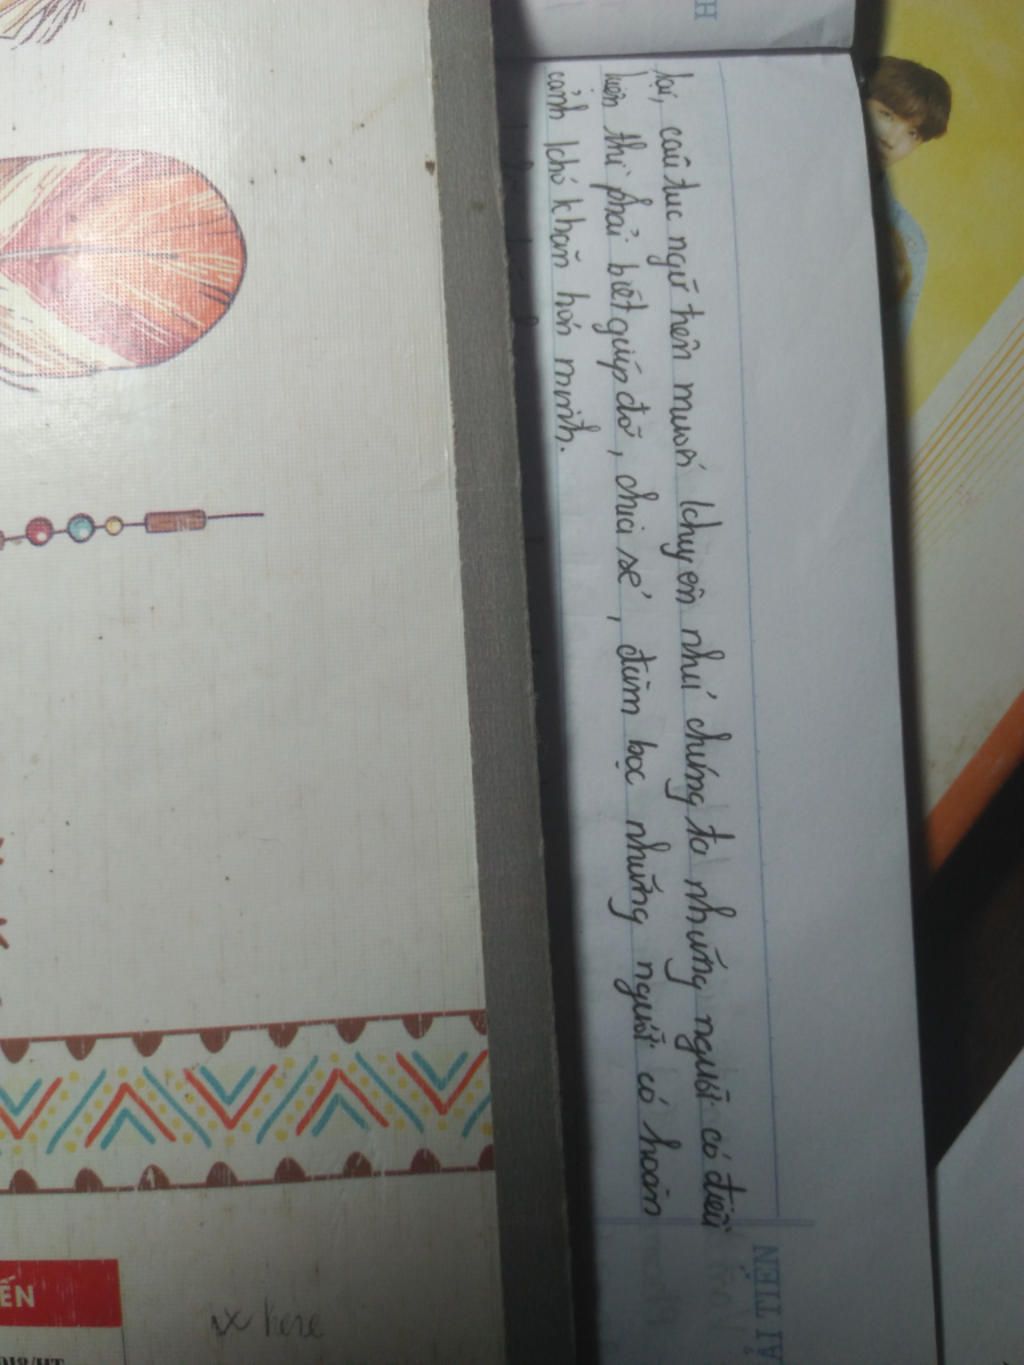 lại, câu tục ngữ trên muốn khuyên nhủ chúng ta những người có điều
kiện thì phải biết giúp đỡ, chia sẻ, đùm bọc những người có hoàn
cảnh khó khăn hơn mình.
ẢI TIẾN
H
ẾN
here